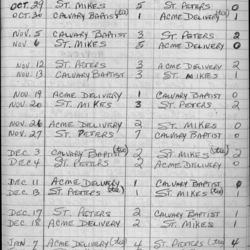 OCT. 29 ST. MIKES 5 ST. PETERS 0
OCT. 30 CALVARY BAPTIST (tie) 1 ACME DELIVERY (tie) 1
NOV. 5 CALVARY BAPTIST 3 ST. PETERS 2
NOV. 6 ST. MIKES 5 ACME DELIVERY 0
NOV. 12 ST. PETERS 3 ACME DELIVERY 0
NOV. 13 CALVARY BAPTIST 3 ST. MIKES 1
NOV. 19 ACME DELIVERY 1 CALVARY BAPTIST 0
NOV. 20 ST. MIKES 3 ST. PETERS 2
NOV. 26 ACME DELIVERY 2 ST. MIKES 0
NOV. 27 ST. PETERS 7 CALVARY BAPTIST 0
DEC. 3 CALVARY BAPTIST (tie) 2 ST. MIKES (tie) 2
DEC. 4 ST. PETERS 2 ACME DELIVERY 0
DEC. 11 ACME DELIVERY 1 CALVARY BAPTIST 0
DEC. 13 ST. PETERS (tie) 1 ST. MIKES (tie) 1
DEC. 17 ST. PETERS 2 CALVARY BAPTIST 1
DEC. 18 ACME DELIVERY 2 ST. MIKES 0
JAN. 7 ACME DELIVERY (tie) 4 ST. PETERS (tie) 4